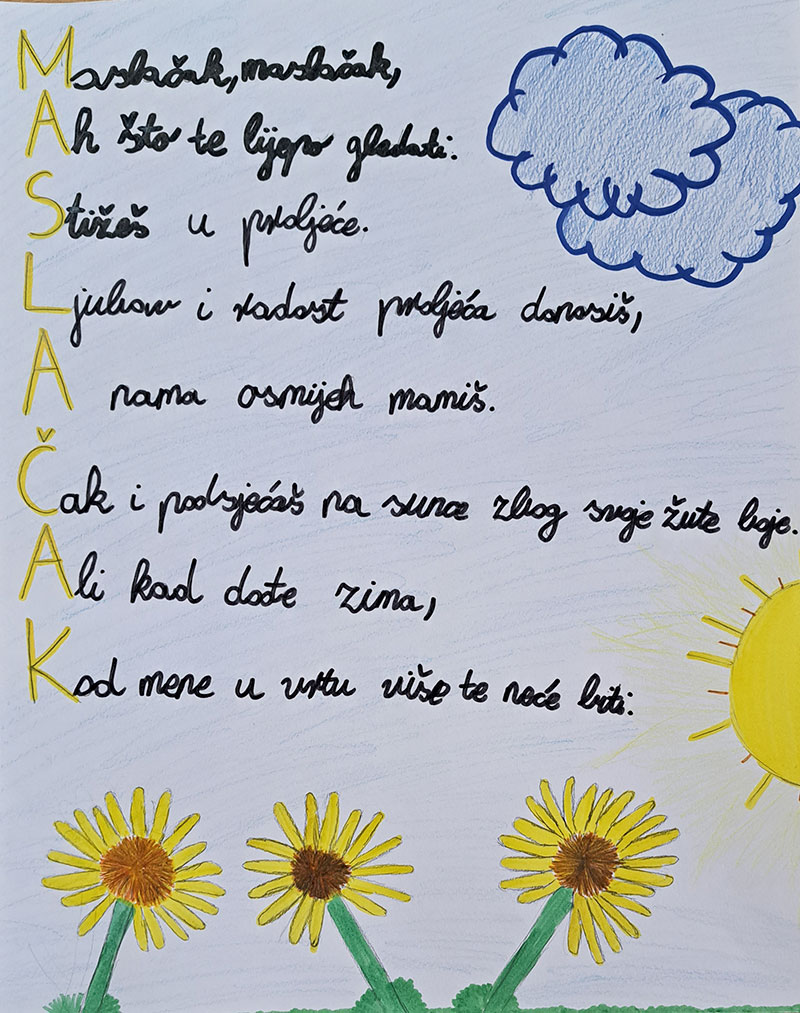 Maslačak, maslačak,
Ah što te lijepo gledati.
Stižeš u proljeće.
Ljubav i radost proljeća donosiš,
A nama osmijeh mamiš.
Čak i podsjećaš na sunce zbog svoje žute boje.
Ali kad dođe zima,
Kod mene u vrtu više te neće biti.